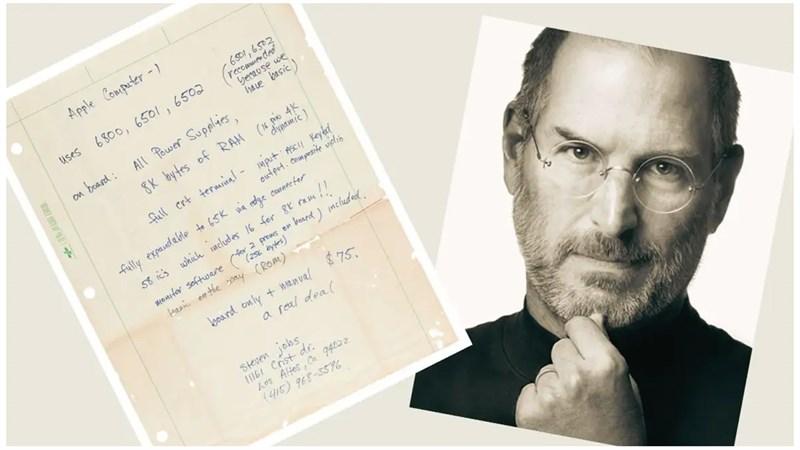 Apple Computer-1
(6501, 6502
recommended
because we
have basic)
uses 6800, 6501, 6502
on board: All Power Supplies,
8K bytes of RAM (16 pin 4K
dynamic)
full crt terminal - input: ASCII
output: composite video
fully expandable to 65K via edge connector
58 ic's which includes 16 for 8K ram!!
monitor software (for 2 proms on board) included.
(256 bytes)
basic on the way (ROM)
board only + manual $75.
a real deal
steven jobs
11161 Crist dr.
Los Altos, Ca 94022
(415) 968-3596.